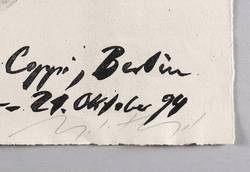 Coppi, Berlin
-- 21. Oktober 94